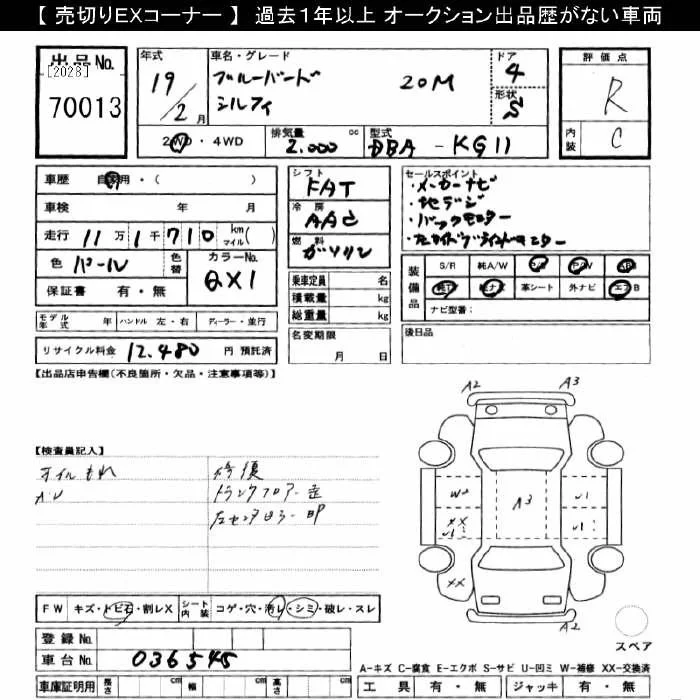 【 売切りEXコーナー 】 過去1年以上 オークション出品歴がない車両
出品No. [2028] 70013
年式 19/2月
車名・グレード ブルーバード シルフィ 20M
ドア 4
形状 S
評価点 R
内装 C
2WD・4WD 排気量 2.000 cc 型式 DBA - KG11
車歴 自家用・( )
車検 年 月
走行 11万1千710 km マイル( )
色 パール 色替 カラーNo. QX1
保証書 有・無
モデル年式 年 ハンドル 左・右 ディーラー・並行
リサイクル料金 12.480 円 預託済
シフト FAT
冷房 AAC
燃料 ガソリン
乗車定員 名
積載量 kg
総重量 kg
名変期限 月 日
セールスポイント
・メーカーナビ
・地デジ
・バックモニター
・サイドブラインドモニター
装備品 S/R 純A/W P/S P/W ABS
純TV 純ナビ 革シート 外ナビ エアB
ナビ型番:
後日品
【出品店申告欄(不良箇所・欠品・注意事項等)】
【検査員記入】
オイルもれ
修復
トランクフロアー歪
左センタピラー凹
A2 A3
W2 A3 U1
XX U1 U1
XX
A2
スペア
FW キズ・トビ石・割レX シート内装 コゲ・穴・汚レ・シミ・破レ・スレ
登録No.
車台No. 036545
車庫証明用 長さ cm 幅 cm 高さ cm
A-キズ C-腐食 E-エクボ S-サビ U-凹ミ W-補修 XX-交換済
工具 有・無 ジャッキ 有・無